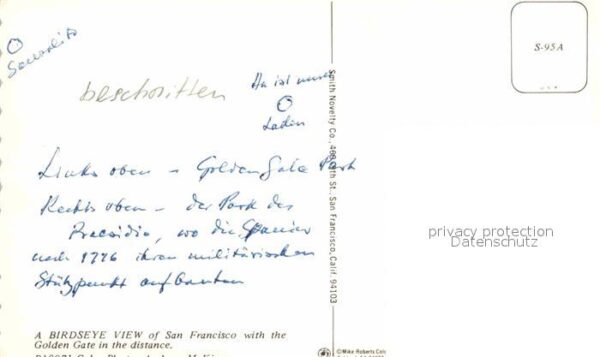 S-95A
Sausalito
beschritten
Da ist unser
Laden
Links oben – Golden Gate Park
Rechts oben – der Park des
Praesidio, wo die Spanier
nach 1776 ihren militärischen
Stützpunkt aufbauten
Smith Novelty Co., 460 9th St. San Francisco, Calif. 94103
privacy protection
Datenschutz
A BIRDSEYE VIEW of San Francisco with the
Golden Gate in the distance.
©Mike Roberts Color